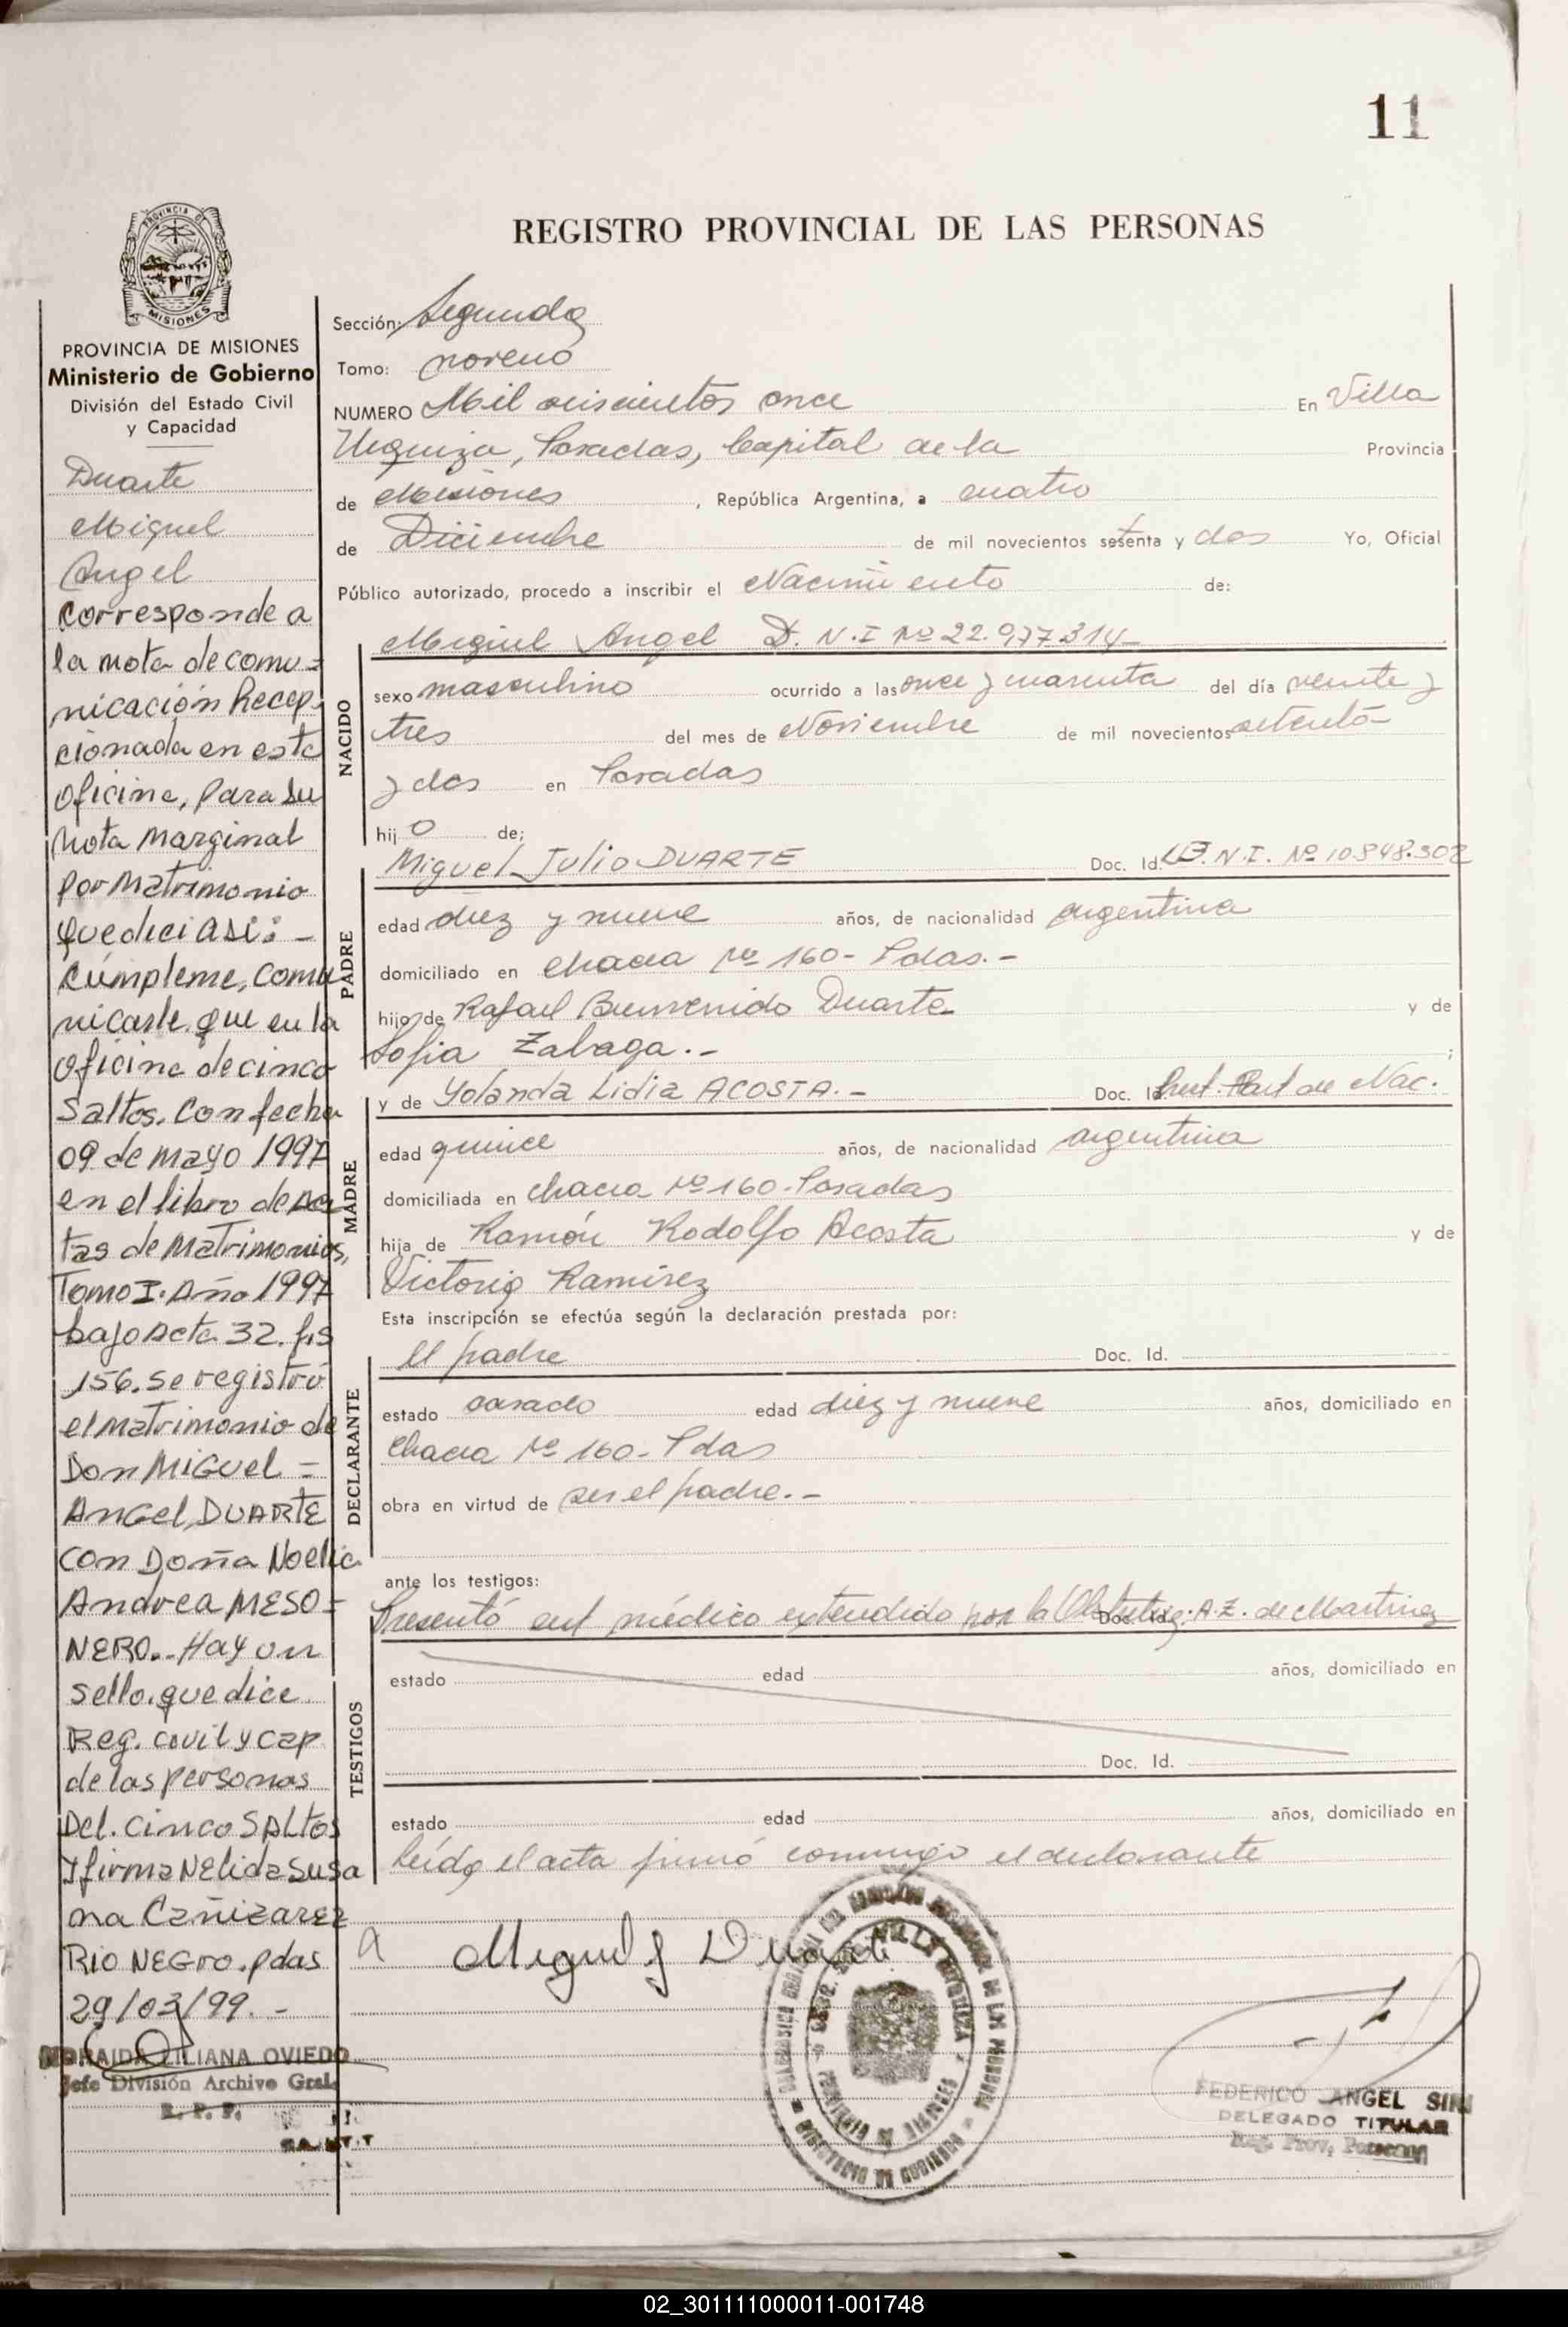 11
REGISTRO PROVINCIAL DE LAS PERSONAS
PROVINCIA DE
MISIONES
PROVINCIA DE MISIONES
Ministerio de Gobierno
División del Estado Civil
y Capacidad
Duarte
Miguel
Angel
Corresponde a
la nota de comu=
nicación Recep-
cionada en esta
oficina, para su
Nota Marginal
por Matrimonio
que dice asi: -
Cúmpleme, Comu
nicarle que en la
oficina de cinco
Saltos, Con fecha
09 de mayo 1997
en el libro de Ac
tas de Matrimonios,
Tomo I. Año 1997
bajo Acta 32. fs
156. se registró
el matrimonio de
Don MIGUEL =
ANGEL DUARTE
con Doña Noelia
Andrea MESO=
NERO.- Hay un
sello que dice
Reg. civil y cap
de las personas
Del. Cinco SALtos
y firma Nelida Susa
na Cañizarez
RIO NEGRO. pdas
29/03/99. -
LILIANA OVIEDO
Jefe División Archivo Gral.
R. P. P.
Sección: Segunda
Tomo: noveno
NUMERO Mil seiscientos once En Villa
Urquiza, Posadas, Capital de la Provincia
de Misiones, República Argentina, a cuatro
de Diciembre de mil novecientos setenta y dos Yo, Oficial
Público autorizado, procedo a inscribir el Nacimiento de:
Miguel Angel D.N.I Nº 22.977.314-
NACIDO
sexo masculino ocurrido a las once y cuarenta del día veinte y
tres del mes de Noviembre de mil novecientos setenta
y dos en Posadas
hij o de;
Miguel Julio DUARTE Doc. Id. D.N.I. Nº 10.848.302
PADRE
edad diez y nueve años, de nacionalidad argentina
domiciliado en Chacra Nº 160- Pdas.-
hijo de Rafael Bienvenido Duarte y de
Sofia Zabaga.- ;
y de Yolanda Lidia ACOSTA.- Doc. Id. Part de Nac.
MADRE
edad quince años, de nacionalidad argentina
domiciliada en Chacra Nº 160-Posadas
hija de Ramón Rodolfo Acosta y de
Victoria Ramírez
Esta inscripción se efectúa según la declaración prestada por:
el padre Doc. Id.
DECLARANTE
estado casado edad diez y nueve años, domiciliado en
Chacra Nº 160- Pdas
obra en virtud de ser el padre.-
ante los testigos:
Presentó cert médico extendido por la Obstetriz: A.Z. de Martinez Doc. Id.
TESTIGOS
estado edad años, domiciliado en
Doc. Id.
estado edad años, domiciliado en
Leída el acta firmó conmigo el declarante
Miguel J Duarte
FEDERICO ANGEL
DELEGADO TITULAR
Reg. Prov. Personas
02_301111000011-001748